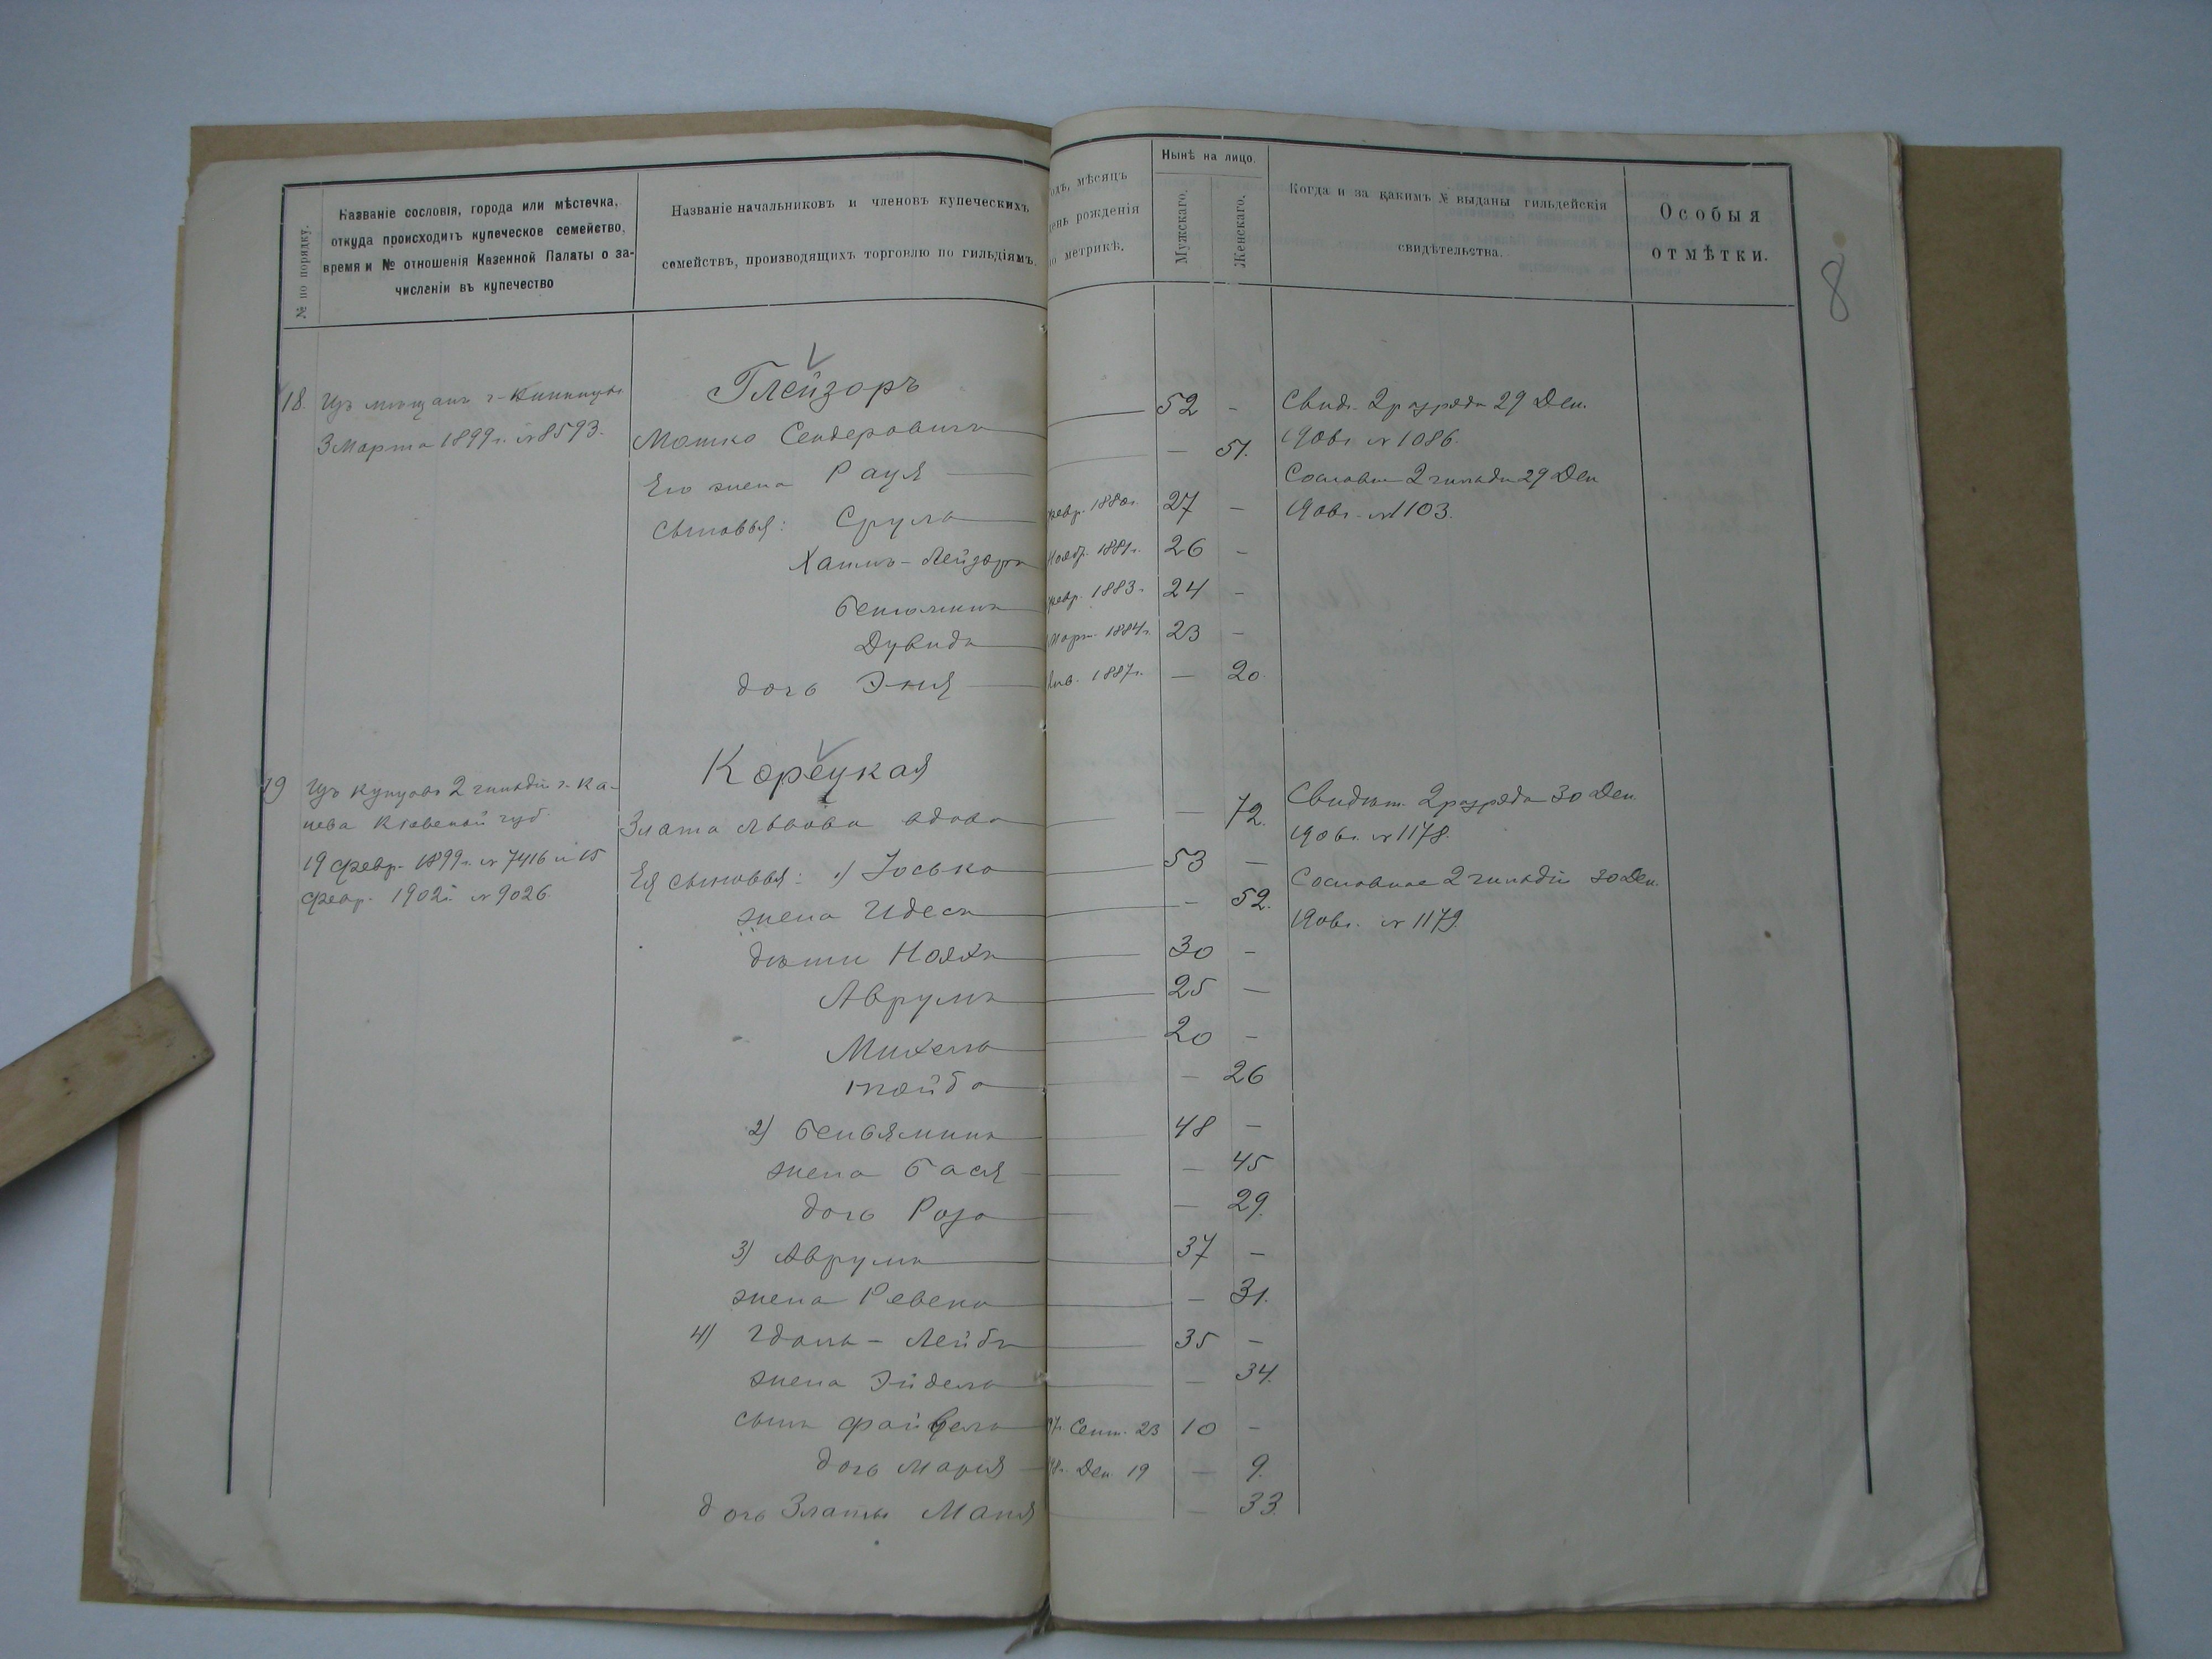 № по порядку.
Названіе сословія, города или мѣстечка,
откуда происходитъ купеческое семейство,
время и № отношенія Казенной Палаты о за-
численіи въ купечество
Названіе начальниковъ и членовъ купеческихъ
семействъ, производящихъ торговлю по гильдіямъ.
одъ, мѣсяцъ
день рожденія
по метрикѣ.
Нынѣ на лицо.
Мужскаго.
Женскаго.
Когда и за какимъ № выданы гильдейскія
свидѣтельства.
Особыя
отмѣтки.
8
18. Изъ мѣщанъ г.
3 Марта 1899 г. № 8593.
Глейзоръ
Мошко Сендеровичъ 52 -
Его жена Рауя — 51.
сыновья: Сруль февр. 1880 г. 27 -
Хаимъ-Лейзоръ Нояб. 1881 г. 26 -
Беньяминъ февр. 1883 г. 24 -
Дувидъ Март. 1884 г. 23 -
дочь Эня Янв. 1887 г. — 20.
Свид. 2 разряда 29 Дек.
1906 г. № 1086.
Сословн. 2 гильдіи 29 Дек.
1906 г. № 1103.
19 Изъ купцовъ 2 гильдіи г. Ка-
нева Кіевской губ.
19 Февр. 1899 г. № 7416 и 15
Февр. 1902 г. № 9026.
Корецкая
Злата Львова вдова — 72.
Ея сыновья: 1) Іосько 53 —
жена Идесъ - 52.
дѣти Нояхъ 30 -
Аврумъ 25 —
Михель 20 -
Тойба — 26
2) Беньяминъ 48 —
жена Бася — 45
дочь Роза — 29.
3) Аврумъ 37 —
жена Ревека — 31.
4) Гдаль-Лейбъ 35 -
жена Эйдель — 34.
сынъ Файвель 97 г. Сент. 23 10 -
дочь Марія 98 г. Дек. 19 — 9.
дочь Златы Маня — 33.
Свидѣт. 2 разряда 30 Дек.
1906 г. № 1178.
Сословное 2 гильдіи 30 Дек.
1906 г. № 1179.